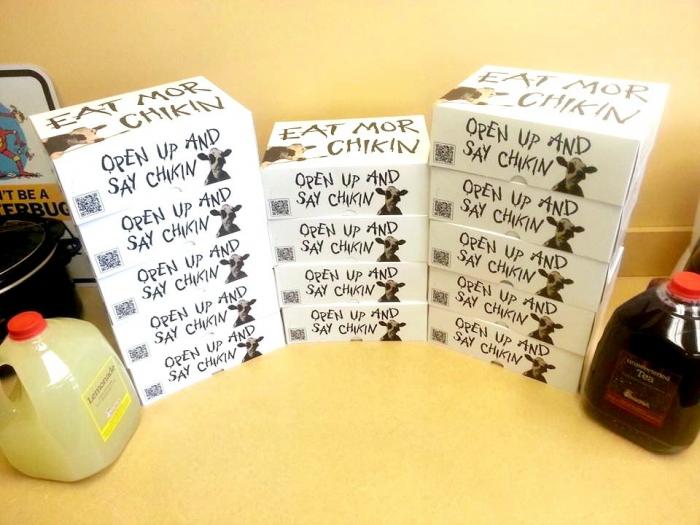 EAT MOR
CHIKIN
OPEN UP AND
SAY CHIKIN
OPEN UP AND
SAY CHIKIN
OPEN UP AND
SAY CHIKIN
OPEN UP AND
SAY CHIKIN
OPEN UP AND
SAY CHIKIN
EAT MOR
CHIKIN
OPEN UP AND
SAY CHIKIN
OPEN UP AND
SAY CHIKIN
OPEN UP AND
SAY CHIKIN
OPEN UP AND
SAY CHIKIN
EAT MOR
CHIKIN
OPEN UP AND
SAY CHIKIN
OPEN UP AND
SAY CHIKIN
OPEN UP AND
SAY CHIKIN
OPEN UP AND
SAY CHIKIN
OPEN UP AND
SAY CHIKIN
'T BE A
TERBUG
Lemonade
unsweetened
Tea